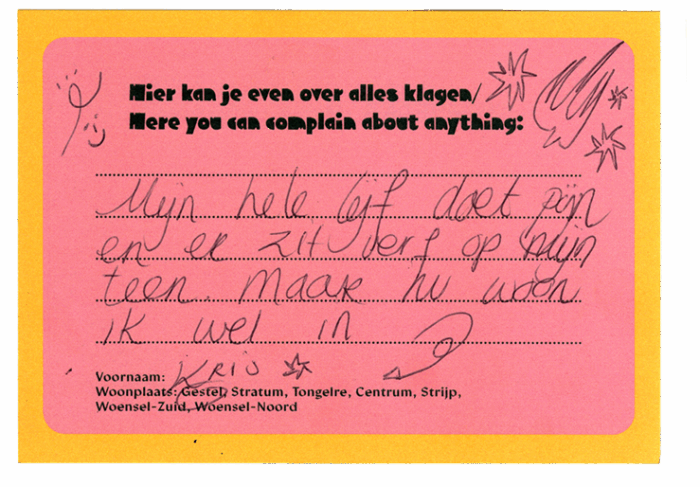 Hier kan je even over alles klagen/
Here you can complain about anything:
Mijn hele lijf doet pijn
en er zit verf op mijn
teen. Maar nu woon
ik wel in
Voornaam: KRIS
Woonplaats: Gestel, Stratum, Tongelre, Centrum, Strijp,
Woensel-Zuid, Woensel-Noord